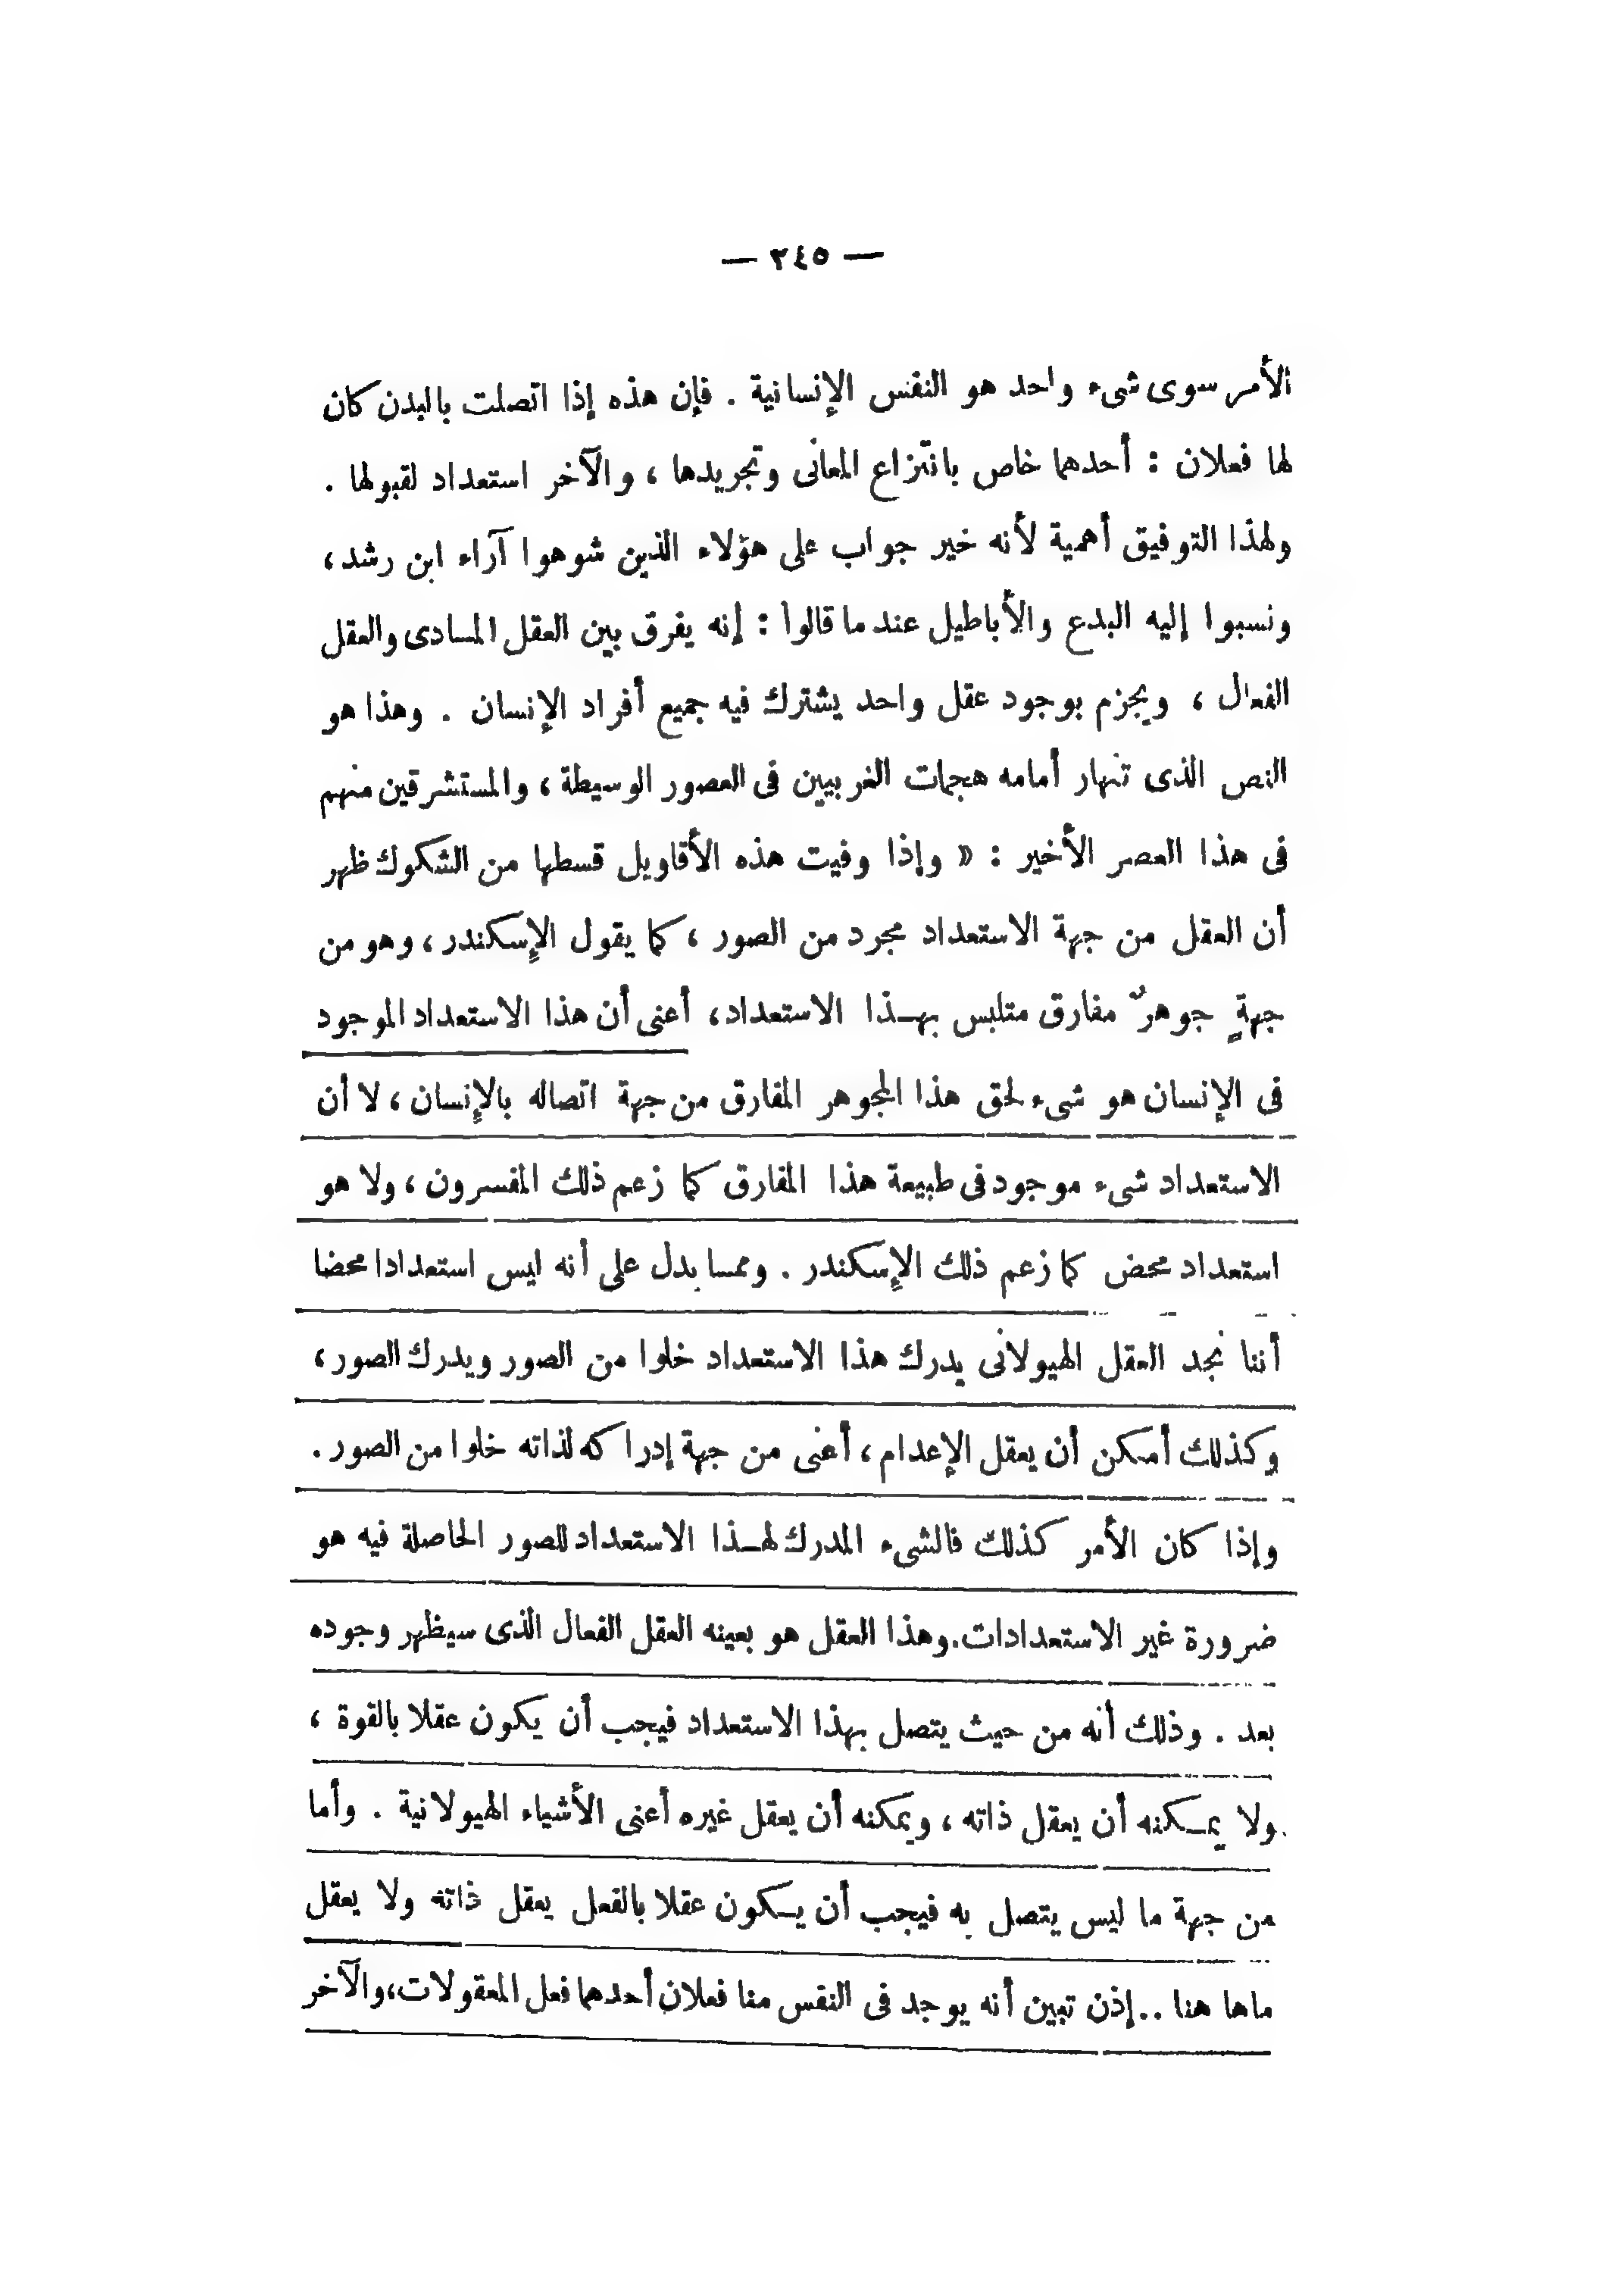 — ٢٤٥ —
الأمر سوى شىء واحد هو النفس الإنسانية . فإن هذه إذا اتصلت بالبدن كان
لها فعلان : أحدهما خاص بانتزاع المعانى وتجريدها ، والآخر استعداد لقبولها .
ولهذا التوفيق أهمية لأنه خير جواب على هؤلاء الذين شوهوا آراء ابن رشد ،
ونسبوا إليه البدع والأباطيل عند ما قالوا : إنه يفرق بين العقل المادى والعقل
الفعال ، ويجزم بوجود عقل واحد يشترك فيه جميع أفراد الإنسان . وهذا هو
النص الذى تنهار أمامه هجمات الغربيين فى العصور الوسيطة ، والمستشرقين منهم
فى هذا العصر الأخير : « وإذا وفيت هذه الأقاويل قسطها من الشكوك ظهر
أن العقل من جهة الاستعداد مجرد من الصور ، كما يقول الإسكندر ، وهو من
جهةٍ جوهرٌ مفارق متلبس بهـذا الاستعداد ، أعنى أن هذا الاستعداد الموجود
فى الإنسان هو شىء لحق هذا الجوهر المفارق من جهة اتصاله بالإنسان ، لا أن
الاستعداد شىء موجود فى طبيعة هذا المفارق كما زعم ذلك المفسرون ، ولا هو
استعداد محض كما زعم ذلك الإسكندر . ومما يدل على أنه ليس استعدادا محضا
أننا نجد العقل الهيولانى يدرك هذا الاستعداد خلوا من الصور ويدرك الصور ،
وكذلك أمكن أن يعقل الإعدام ، أعنى من جهة إدراكه لذاته خلوا من الصور .
وإذا كان الأمر كذلك فالشىء المدرك لهـذا الاستعداد للصور الحاصلة فيه هو
ضرورة غير الاستعدادات . وهذا العقل هو بعينه العقل الفعال الذى سيظهر وجوده
بعد . وذلك أنه من حيث يتصل بهذا الاستعداد فيجب أن يكون عقلا بالقوة ،
ولا يمـكنه أن يعقل ذاته ، ويمكنه أن يعقل غيره أعنى الأشياء الهيولانية . وأما
من جهة ما ليس يتصل به فيجب أن يـكون عقلا بالفعل يعقل ذاته ولا يعقل
ماها هنا .. إذن تبين أنه يوجد فى النفس منا فعلان أحدهما فعل المعقولات ، والآخر